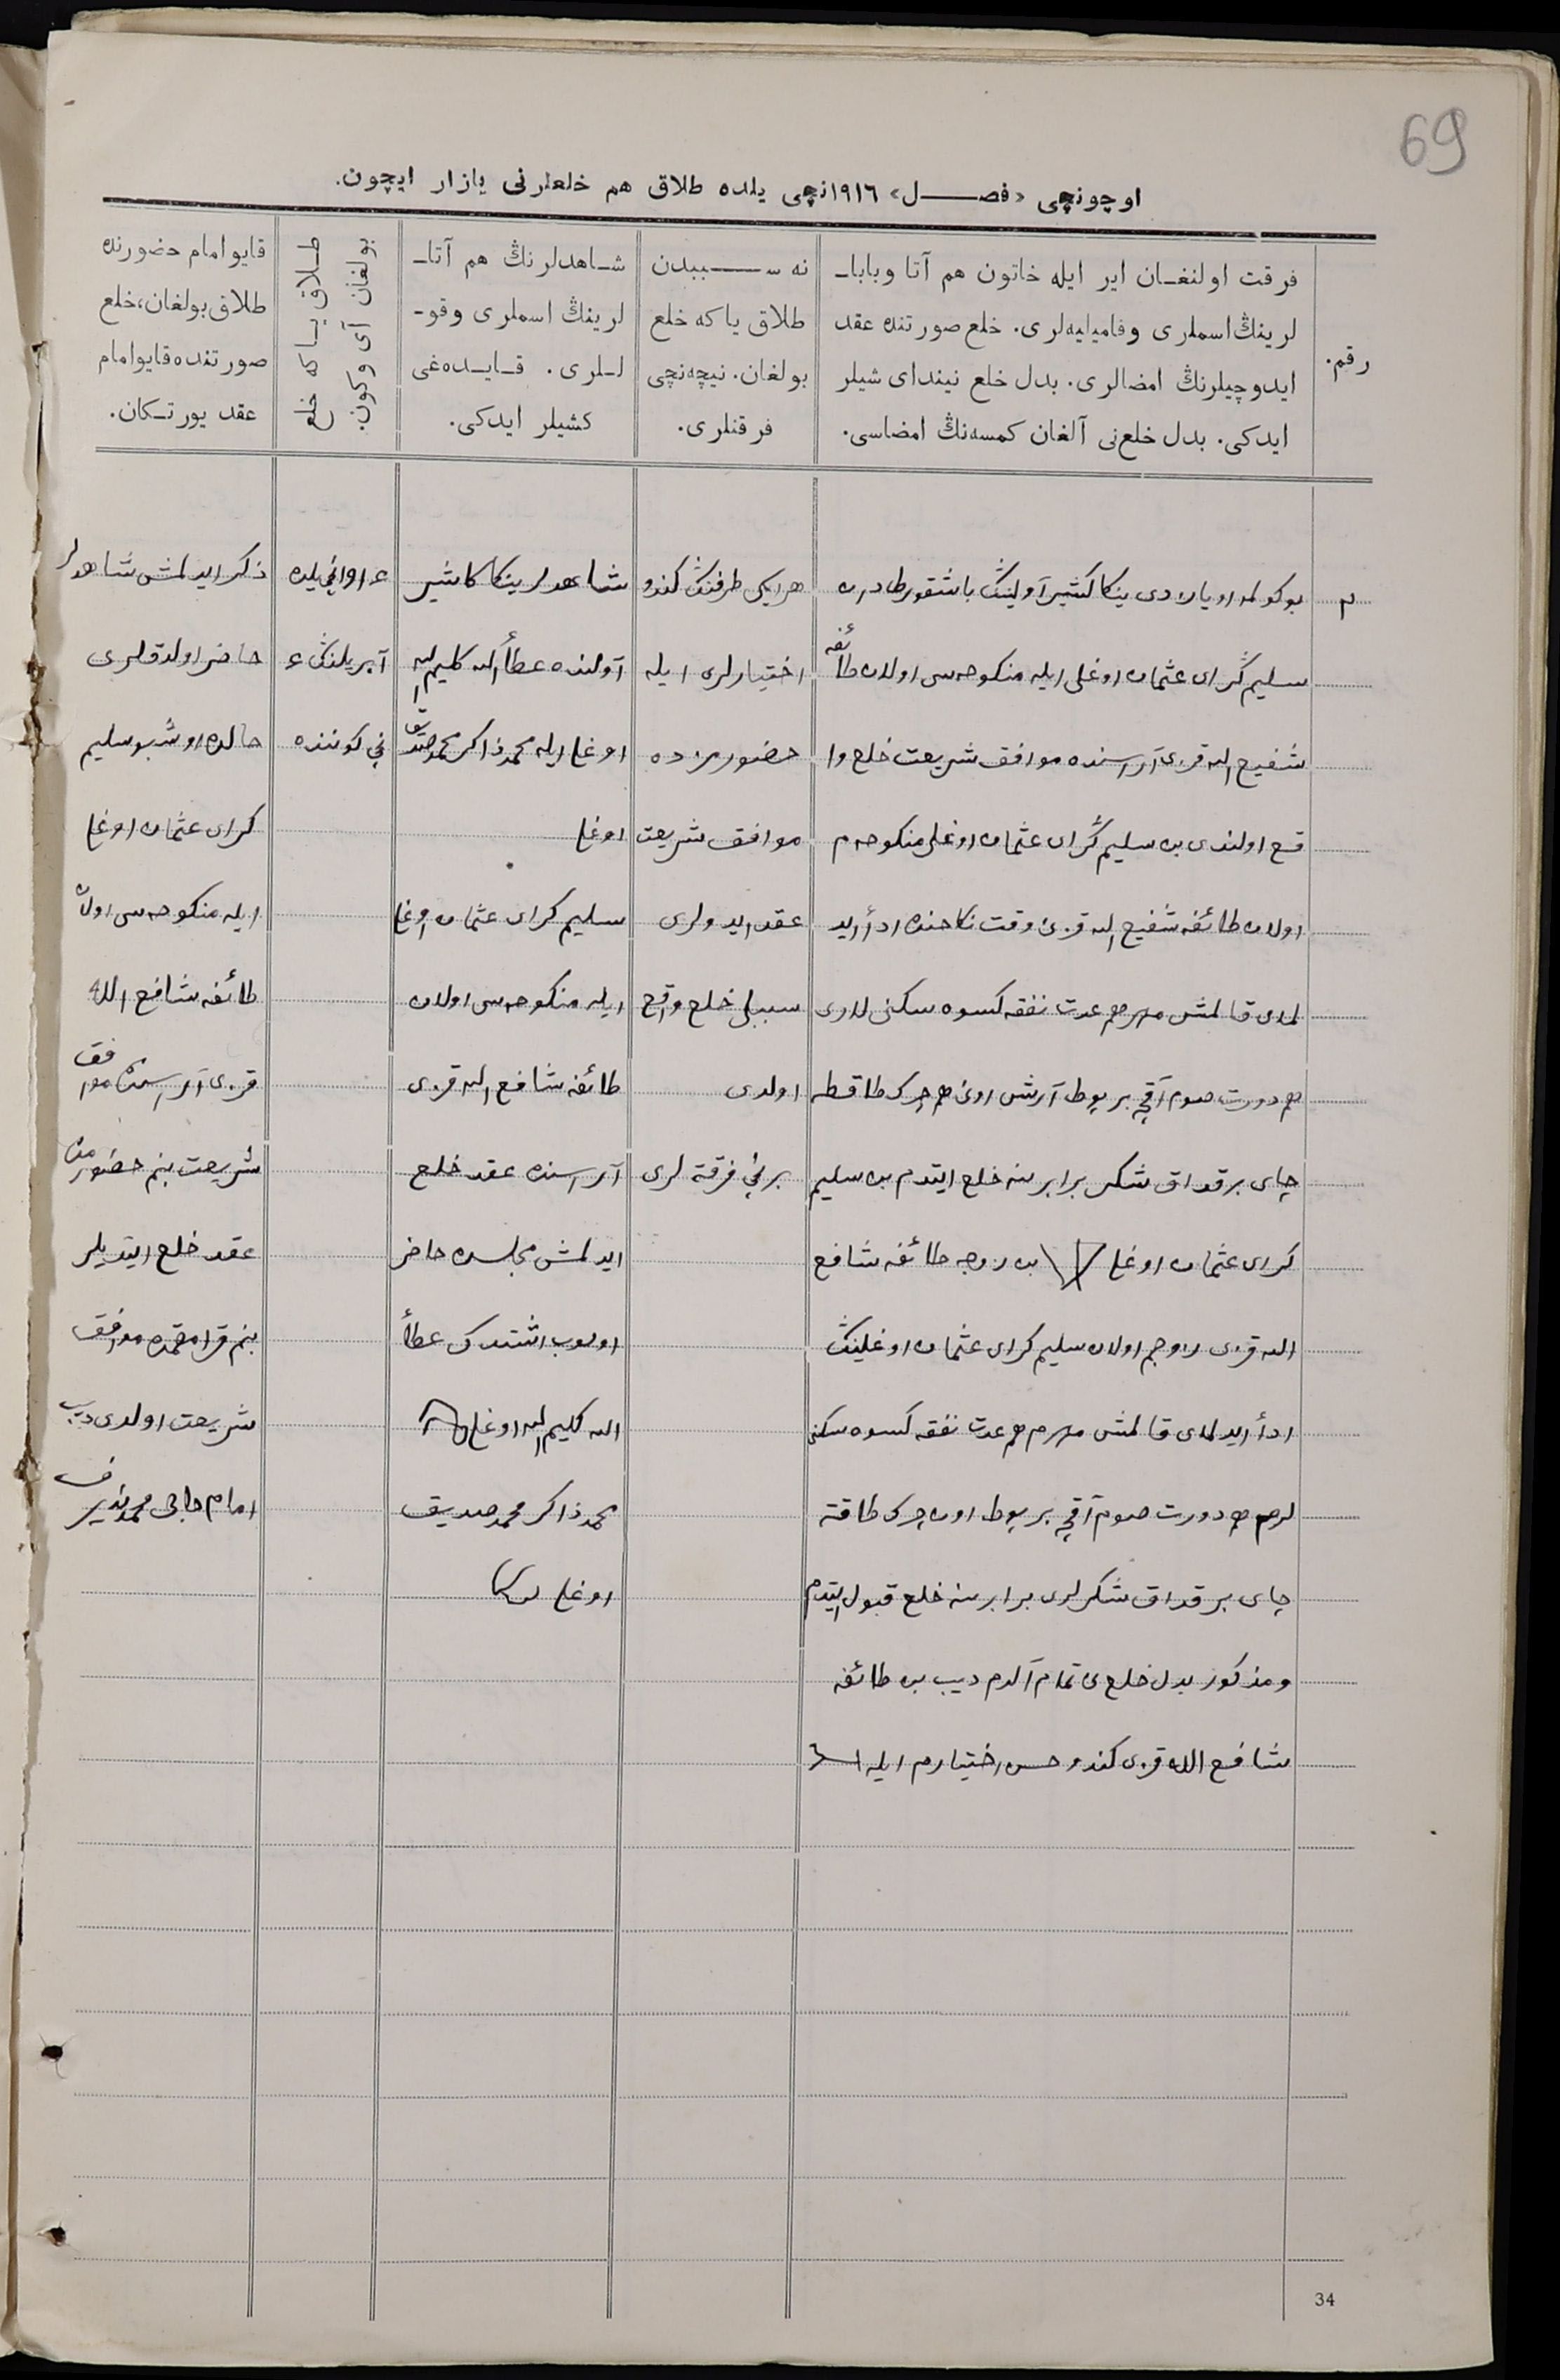 69
اوچونچی «فصـــل» ١٩١٦نچی یلده طلاق هم خلعلرنی یازار ایچون.
رقم.
فرقت اولنغـان ایر ایله خاتون هم آتا وبابا-
لرینڭ اسملری وفامیلیه‌لری. خلع صورتنده عقد
ایدوچیلرنڭ امضالری. بدل خلع نیندای شیلر
ایدکی. بدل خلع‌نی آلغان کمسه‌نڭ امضاسی.
نه ســـببدن
طلاق یا که خلع
بولغان. نیچه‌نچی
فرقتلری.
شـاهدلرنڭ هم آتا-
لرینڭ اسملری وقو-
لـلری. قـایـده‌غی
کشیلر ایدکی.
طـلاق یـا که خلع
بولغان آی وکون.
قایو امام حضورنده
طلاق بولغان، خلع
صورتنده قایو امام
عقد یورتـکان.
٢
بو کولمه اویازدی ینکا کشیر آولینڭ باشقورطلردن
سلیم گرای عثمان اوغلی ایله منکوحه سی اولان طائفه
شفیع الله قزی آراسنده موافق شریعت خلع وا
قع اولندی بن سلیم گرای عثمان اوغلی منکوحه م
اولان طائفه شفیع الله قزی وقت نکاحنده ادأ اید
لمای قالمش مهرم عدت نفقه کسوه سکنی لاری
هم دورت صوم آقچه بر پوط آرش اونی هم چرک طاقطه
چای بر قداق شکر برابرینه خلع ایتدم بن سلیم
گرای عثمان اوغلی بن زوجه طائفه شافع
الله قزی زوجم اولان سلیم کرای عثمان اوغلینڭ
ادأ ایدلمای قالمش مهرم هم عدت نفقه کسوه سکنی
لرم هم دورت صوم آقچه بر پوط اون چرک طاقته
چای بر قداق شکرلری برابرینه خلع قبول ایتدم
ومذکور بدل خلع نی تمام آلدم دیب بن طائفه
شافع الله قزی کندو حسن اختیارم ایله
هر ایکی طرفنڭ کندو
اختیارلری ایله
حضورمزده
موافق شریعت
عقد ایدولری
سببلی خلع واقع
اولدی
برنچی فرقة لری
شاهدلر ینکا کاشیر
آولنده عطأ الله کلیم الله
اوغلی ایله محمد ذاکر محمد صدیق
اوغلی
سلیم کرای عثمان اوغلی
ایله منکوحه سی اولان
طائفه شافع الله قزی
آراسنده عقد خلع
ایدلمش مجلسده حاضر
اولوب اشتدک عطأ
الله کلیم الله اوغلی
محمد ذاکر محمد صدیق
اوغلی
١٩١٦نچی یلده
آپریلنڭ ٤
نچی کوننده
ذکر ایدلمش شاهدلر
حاضر اولدقلری
حالده اوشبو سلیم
کرای عثمان اوغلی
ایله منکوحه سی اولان
طائفه شافع الله
قزی آراسنده موافق
شریعت بنم حضورمده
عقد خلع ایتدیلر
بنم قرامقمده موافق
شریعت اولدی دیب
امام حاجی محمد
34